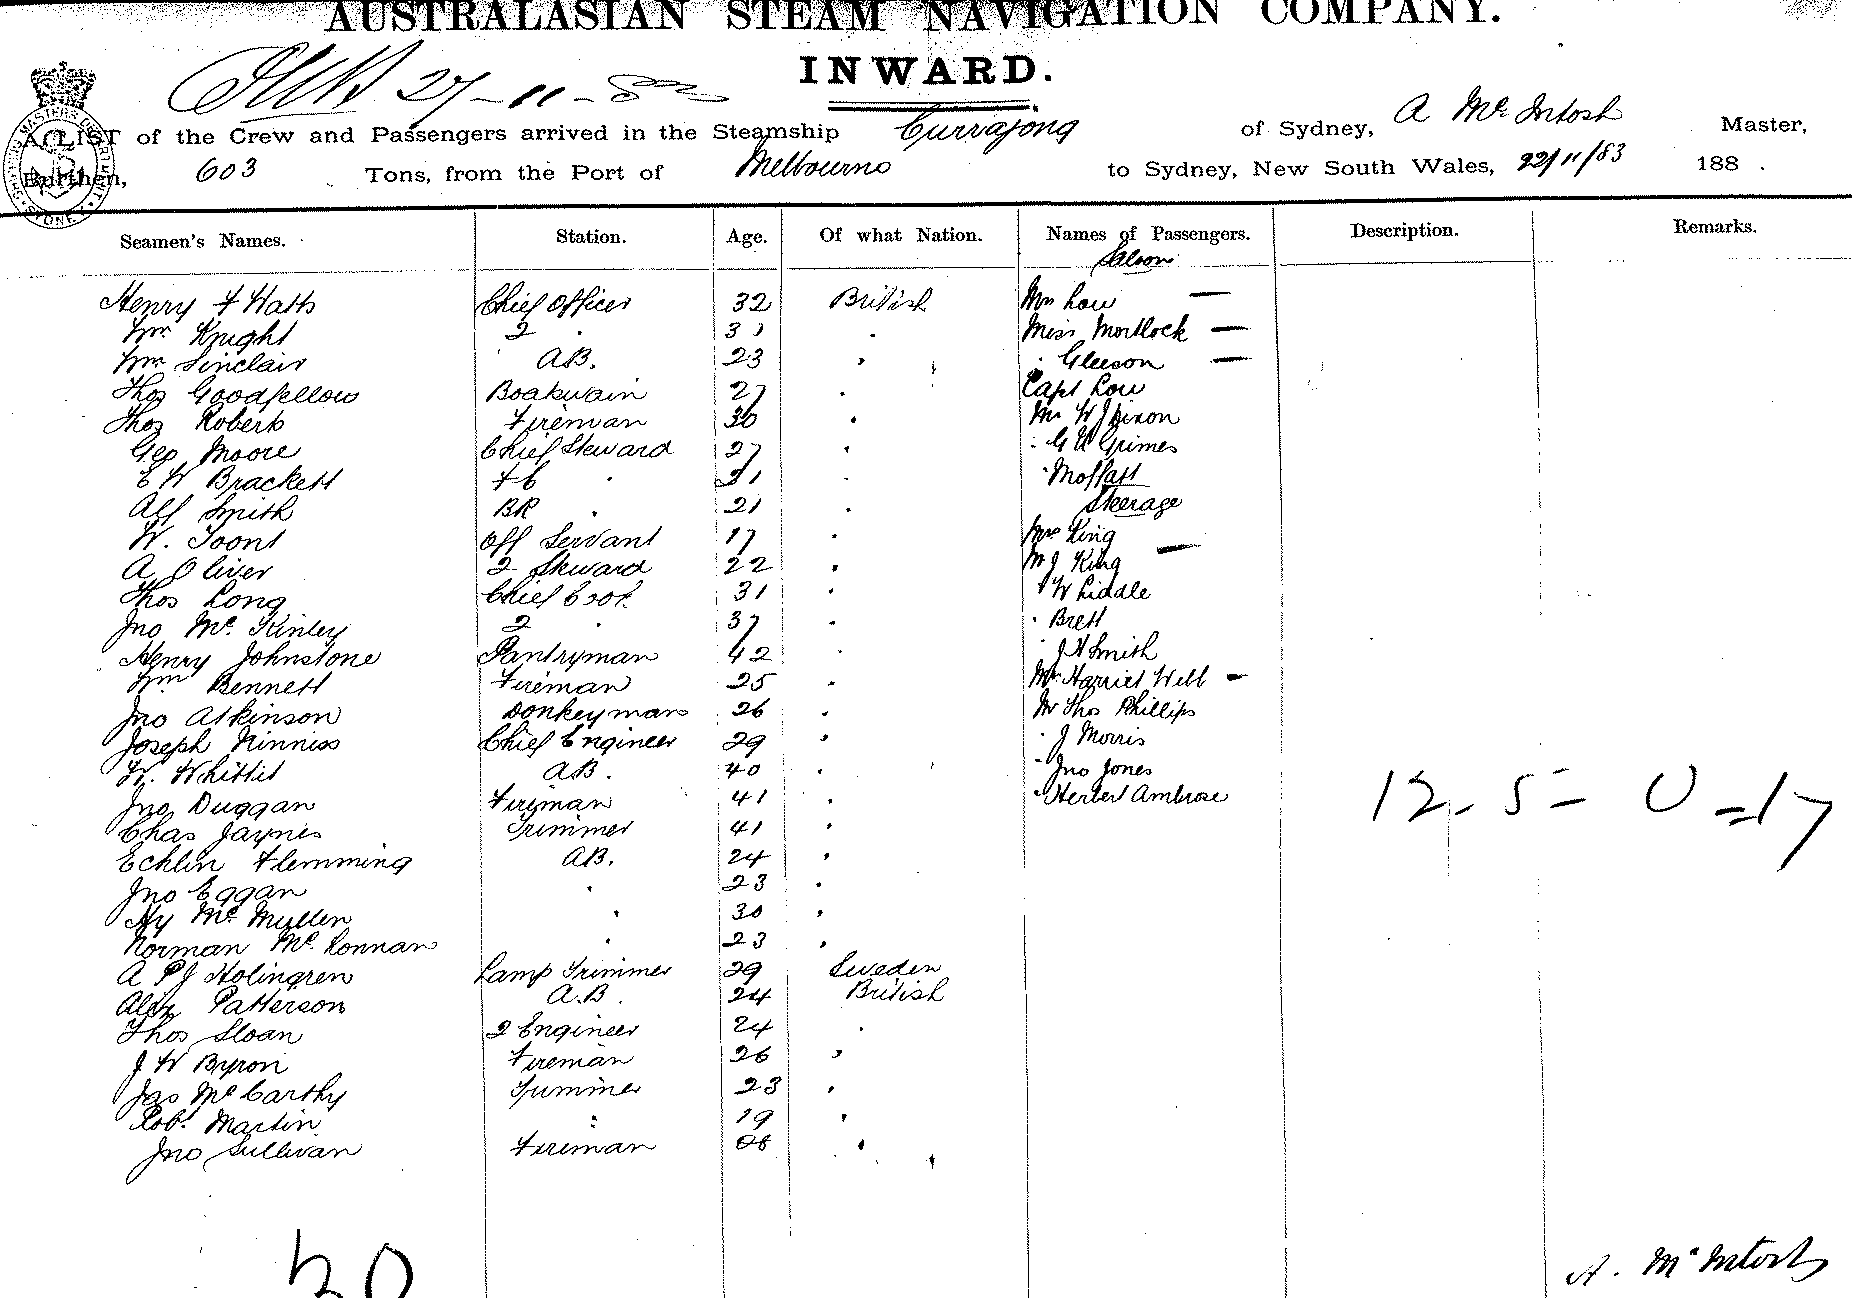 AUSTRALASIAN STEAM NAVIGATION COMPANY.
INWARD.
27-11-83
A LIST of the Crew and Passengers arrived in the Steamship Currajong of Sydney, A McIntosh Master,
Burthen, 603 Tons, from the Port of Melbourne to Sydney, New South Wales, 22/11/83 188 .
Seamen's Names. Station. Age. Of what Nation. Names of Passengers. Description. Remarks.
Saloon
Henry F Watts Chief Officer 32 British Mrs Low —
Wm Knight 2 " 31 " Miss Mortlock —
Wm Sinclair AB. 23 " " Gleeson —
Thos Goodfellow Boatswain 27 " Capt Low
Thos Roberts Fireman 30 " Mr W J Dixon
Geo Moore Chief Steward 27 " " G Grimes
E W Brackett F C " 31 " " Moffatt
Alf Smith BR " 21 " Steerage
W. Toont Off Servant 17 " Mrs King
A Oliver 2 Steward 22 " M J King —
Thos Long Chief Cook 31 " " W Liddle
Jno Mc Kinley 2 " 37 " " Brett
Henry Johnstone Pantryman 42 " " J H Smith
Wm Bennett Fireman 25 " Mrs Harriet Webb -
Jno Atkinson Donkeyman 26 " Mr Thos Phillips
Joseph Ninniss Chief Engineer 29 " " J Morris
W. Whittit AB. 40 " " Jno Jones
Jno Duggan Fireman 41 " " Herbert Ambrose
12. 5 = 0 = 17
Chas Jaynes Trimmer 41 "
Echlin Flemming AB. 24 "
Jno Eggan " 23 "
Hy Mc Mullen " 30 "
Norman Mc Lonnan " 23 "
A P J Holingren Lamp Trimmer 29 Sweden
Alex Patterson A.B. 24 British
Thos Sloan 2 Engineer 24 "
J W Byron Fireman 26 "
Jas McCarthy Trimmer 23 "
Robt Martin " 19 "
Jno Sullivan Fireman "
30
A. McIntosh